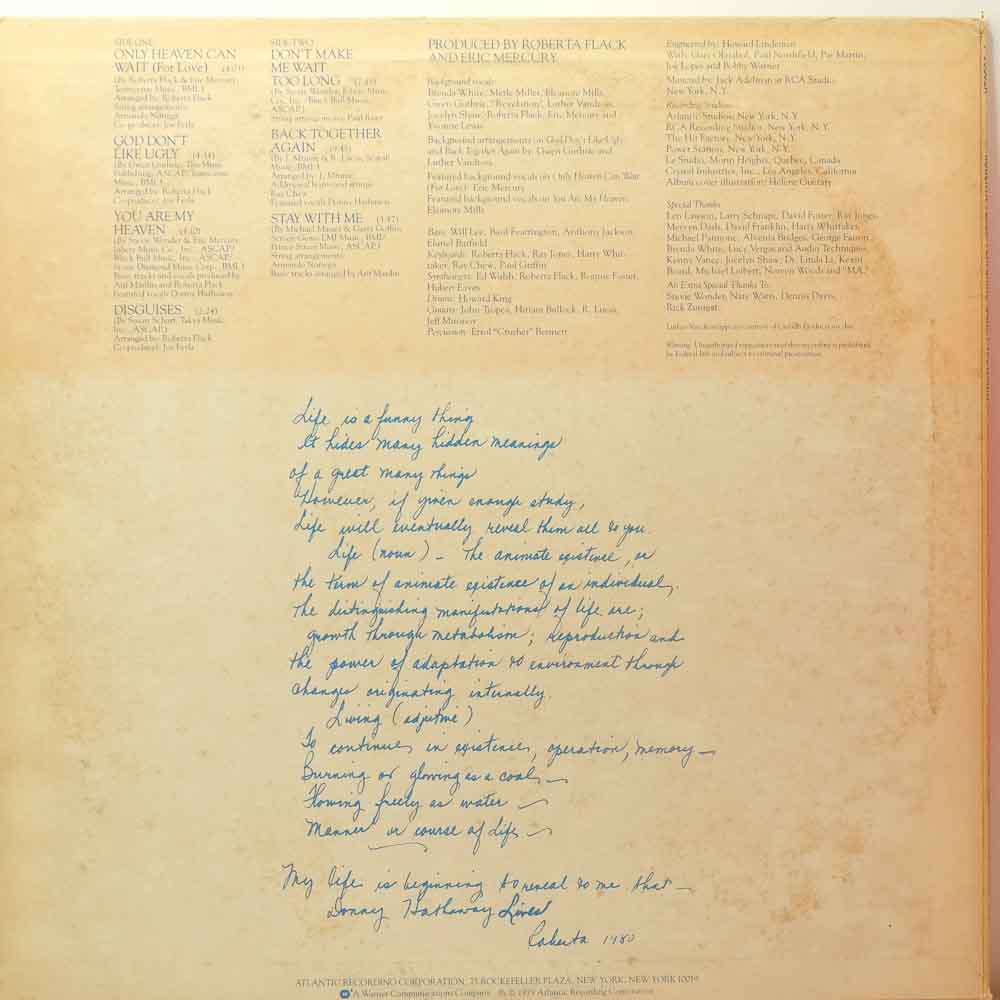 SIDE ONE
ONLY HEAVEN CAN
WAIT (For Love)
(By Roberta Flack & Eric Mercury
Arranged by: Roberta Flack
String arrangements:
Co-producer: Joe Ferla
GOD DON'T
LIKE UGLY
(By Gwen Guthrie,
Arranged by: Roberta Flack
Co-producer: Joe Ferla
YOU ARE MY
HEAVEN
(By Stevie Wonder & Eric Mercury
Black Bull Music, Inc., ASCAP/
Stone Diamond Music Corp., BMI)
Arif Mardin and Roberta Flack
Featured vocalist Donny Hathaway
DISGUISES
Inc., ASCAP)
Arranged by: Roberta Flack
Co-producer: Joe Ferla
SIDE TWO
DON'T MAKE
ME WAIT
TOO LONG
(By Stevie Wonder,
Co., Inc./Black Bull Music,
ASCAP)
String arrangements: Paul Riser
BACK TOGETHER
AGAIN
Music, BMI)
Arranged by:
Additional horns and strings:
Ray Chew
Featured vocalist Donny Hathaway
STAY WITH ME
(By Michael Masser & Gerry Goffin,
Screen Gems EMI Music, BMI/
Prince Street Music, ASCAP)
String arrangements:
Basic tracks arranged by Arif Mardin
PRODUCED BY ROBERTA FLACK
AND ERIC MERCURY
Background vocals:
Brenda White, Merle Miller, Eleanore Mills,
Gwen Guthrie, "Revelation", Luther Vandross,
Jocelyn Shaw, Roberta Flack, Eric Mercury and
Yvonne Lewis
Background arrangements on God Don't Like Ugly
and Back Together Again by: Gwen Guthrie and
Luther Vandross
Featured background vocals on Only Heaven Can Wait
(For Love): Eric Mercury
Featured background vocals on You Are My Heaven:
Eleanore Mills
Bass: Will Lee, Basil Fearrington, Anthony Jackson,
Keyboards: Roberta Flack, Ray Jones, Harry Whit-
taker, Ray Chew, Paul Griffin
Synthesizers: Ed Walsh, Roberta Flack, Ronnie Foster,
Hubert Eaves
Drums: Howard King
Guitars: John Tropea, Hiram Bullock, R. Lucas,
Jeff Mironov
Percussion: Errol "Crusher" Bennett
Engineered by: Howard Lindeman
With: Gary Olazabal, Paul Northfield, Pat Martin,
Joe Lopes and Bobby Warner
Mastered by: Jack Adelman at RCA Studios
New York, N.Y.
Recording Studios:
Atlantic Studios, New York, N.Y.
RCA Recording Studios, New York, N.Y.
The Hit Factory, New York, N.Y.
Power Station, New York, N.Y.
Le Studio, Morin Heights, Quebec, Canada
Crystal Industries, Inc., Los Angeles, California
Album cover illustration: Helene Guetary
Special Thanks
Len Lawson, Larry Schnapf, David Foster, Ray Jones,
Mervyn Dash, David Franklin, Harry Whittaker,
Michael Pannone, Alvenia Bridges, George Faison,
Brenda White, Lucy Vergas and Audio Technique,
Kenny Vance, Jocelyn Shaw, Dr. Linda Li, Kevin
Board, Michael Luibert, Noreen Woods and "MA"
An Extra Special Thanks To:
Stevie Wonder, Nate Watts, Dennis Davis,
Rick Zunigar
Warning: Unauthorized reproduction of this recording is prohibited
by Federal law and subject to criminal prosecution.
Life is a funny thing
It hides many hidden meanings
of a great many things
However, if given enough study,
Life will eventually reveal them all to you.
Life (noun) - The animate existence, or
the term of animate existence of an individual,
The distinguishing manifestations of life are;
growth through metabolism; reproduction and
the power of adaptation to environment through
changes originating internally.
Living (adjetive)
To continue, in existence, operation, memory —
Burning or glowing as a coal, —
Flowing freely as water —
Manner or course of Life —
My life is beginning to reveal to me that —
Donny Hathaway Lives!
Roberta 1980
ATLANTIC RECORDING CORPORATION, 75 ROCKEFELLER PLAZA, NEW YORK, NEW YORK 10019
A Warner Communications Company ℗ © 1979 Atlantic Recording Corporation